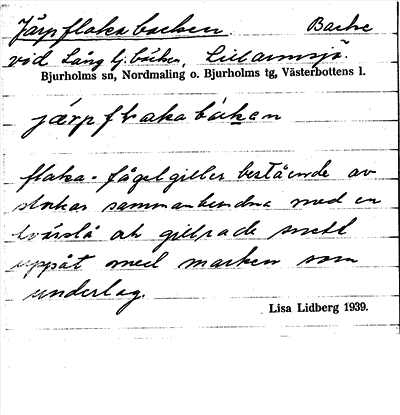 Järpflakabacken Backe
vid Långtjbäcken, Lillarmsjö.
Bjurholms sn, Nordmaling o. Bjurholms tg, Västerbottens l.
järpflakabácken
flaka = fågelgiller bestående av
stokar sammanbundna med en
tvärslå och gillrade snett
uppåt med marken som
underlag.
Lisa Lidberg 1939.